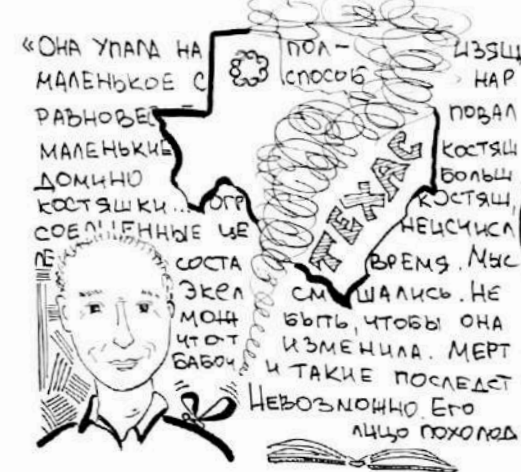 «ОНА УПАЛА НА ПОЛ - ИЗЯЩ
МАЛЕНЬКОЕ С СПОСОБ НАР
РАВНОВЕС ПОВАЛ
МАЛЕНЬКИЕ КОСТЯШ
ДОМИНО БОЛЬШ
КОСТЯШКИ... ОГР КОСТЯШ,
СОЕДИНЕННЫЕ ЦЕ НЕИСЧИСЛ
ТЕХАС
СОСТА ВРЕМЯ. МЫС
ЭКЕЛ СМ ШАЛИСЬ. НЕ
МОЖ БЫТЬ, ЧТОБЫ ОНА
ЧТО-Т ИЗМЕНИЛА. МЕРТ
БАБОЧ И ТАКИЕ ПОСЛЕДСТ
НЕВОЗМОЖНО. ЕГО
ЛИЦО ПОХОЛОД